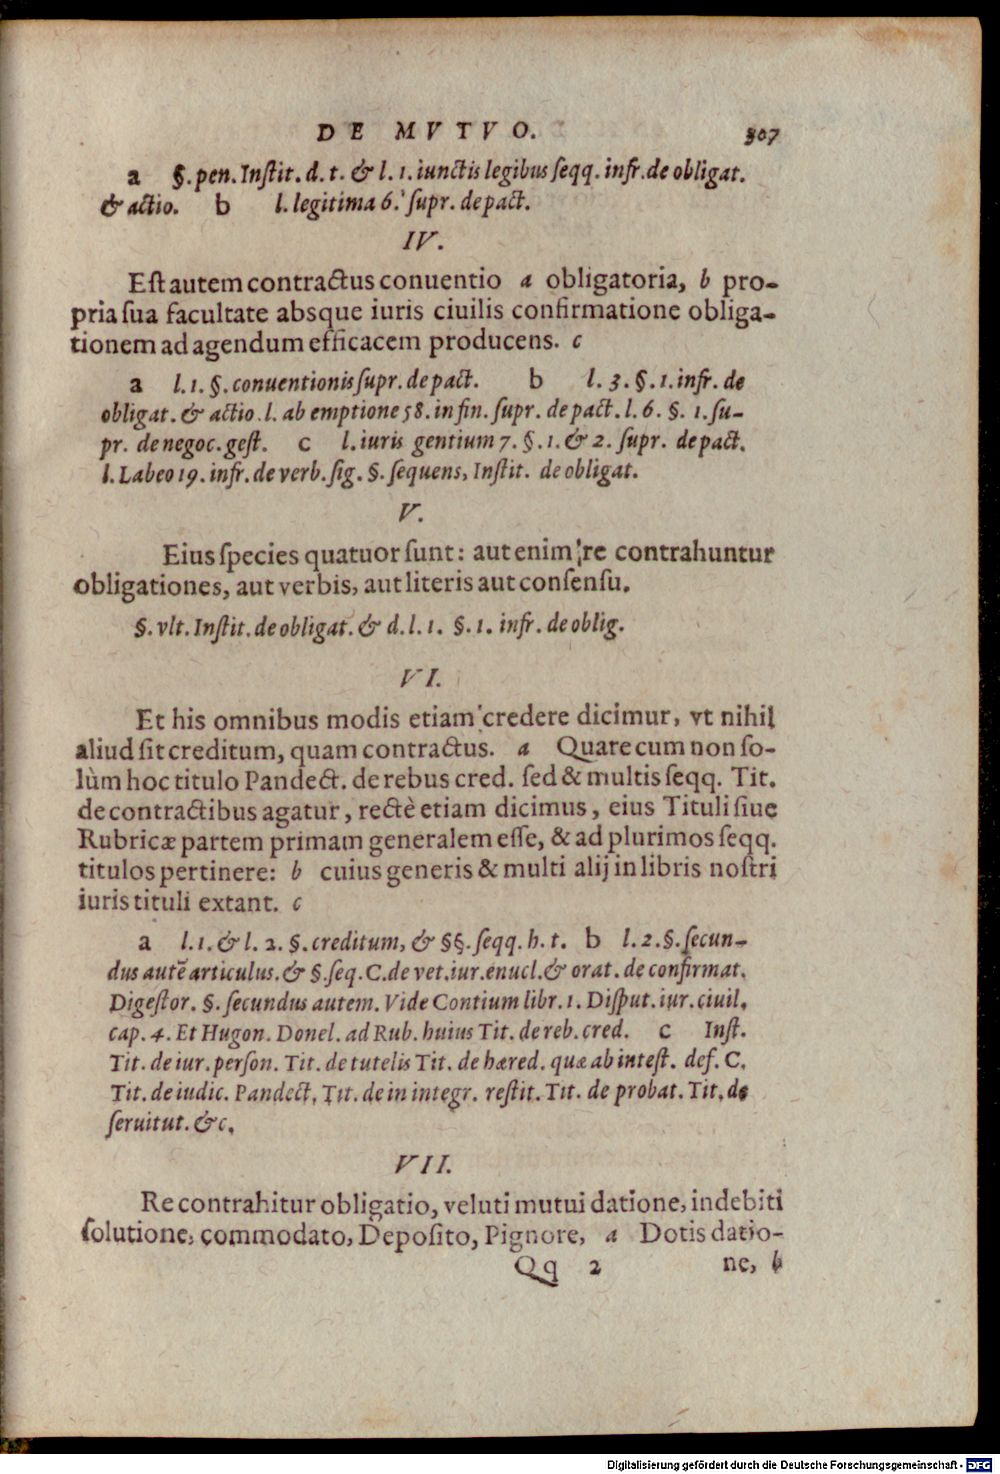 DE MVTVO. 307
a §. pen. Inſtit. d. t. & l. 1. iunctis legibus ſeqq. infr. de obligat.
& actio. b l. legitima 6. ſupr. de pact.
IV.
Eſt autem contractus conuentio a obligatoria, b pro-
pria ſua facultate absque iuris ciuilis confirmatione obliga-
tionem ad agendum efficacem producens. c
a l. 1. §. conuentionis ſupr. de pact. b l. 3. §. 1. infr. de
obligat. & actio. l. ab emptione 58. in fin. ſupr. de pact. l. 6. §. 1. ſu-
pr. de negoc. geſt. c l. iuris gentium 7. §. 1. & 2. ſupr. de pact.
l. Labeo 19. infr. de verb. ſig. §. ſequens, Inſtit. de obligat.
V.
Eius ſpecies quatuor ſunt: aut enim re contrahuntur
obligationes, aut verbis, aut literis aut conſenſu.
§. vlt. Inſtit. de obligat. & d. l. 1. §. 1. infr. de oblig.
VI.
Et his omnibus modis etiam credere dicimur, vt nihil
aliud ſit creditum, quam contractus. a Quare cum non ſo-
lùm hoc titulo Pandect. de rebus cred. ſed & multis ſeqq. Tit.
de contractibus agatur, rectè etiam dicimus, eius Tituli ſiue
Rubricæ partem primam generalem eſſe, & ad plurimos ſeqq.
titulos pertinere: b cuius generis & multi alij in libris noſtri
iuris tituli extant. c
a l. 1. & l. 2. §. creditum, & §§. ſeqq. h. t. b l. 2. §. ſecun-
dus autē articulus. & §. ſeq. C. de vet. iur. enucl. & orat. de confirmat.
Digeſtor. §. ſecundus autem. Vide Contium libr. 1. Diſput. iur. ciuil.
cap. 4. Et Hugon. Donel. ad Rub. huius Tit. de reb. cred. c Inſt.
Tit. de iur. perſon. Tit. de tutelis Tit. de hæred. quæ ab inteſt. def. C.
Tit. de iudic. Pandect. Tit. de in integr. reſtit. Tit. de probat. Tit. de
ſeruitut. &c.
VII.
Re contrahitur obligatio, veluti mutui datione, indebiti
ſolutione, commodato, Depoſito, Pignore, a Dotis datio-
Qq 2 ne, b
Digitalisierung gefördert durch die Deutsche Forschungsgemeinschaft - DFG